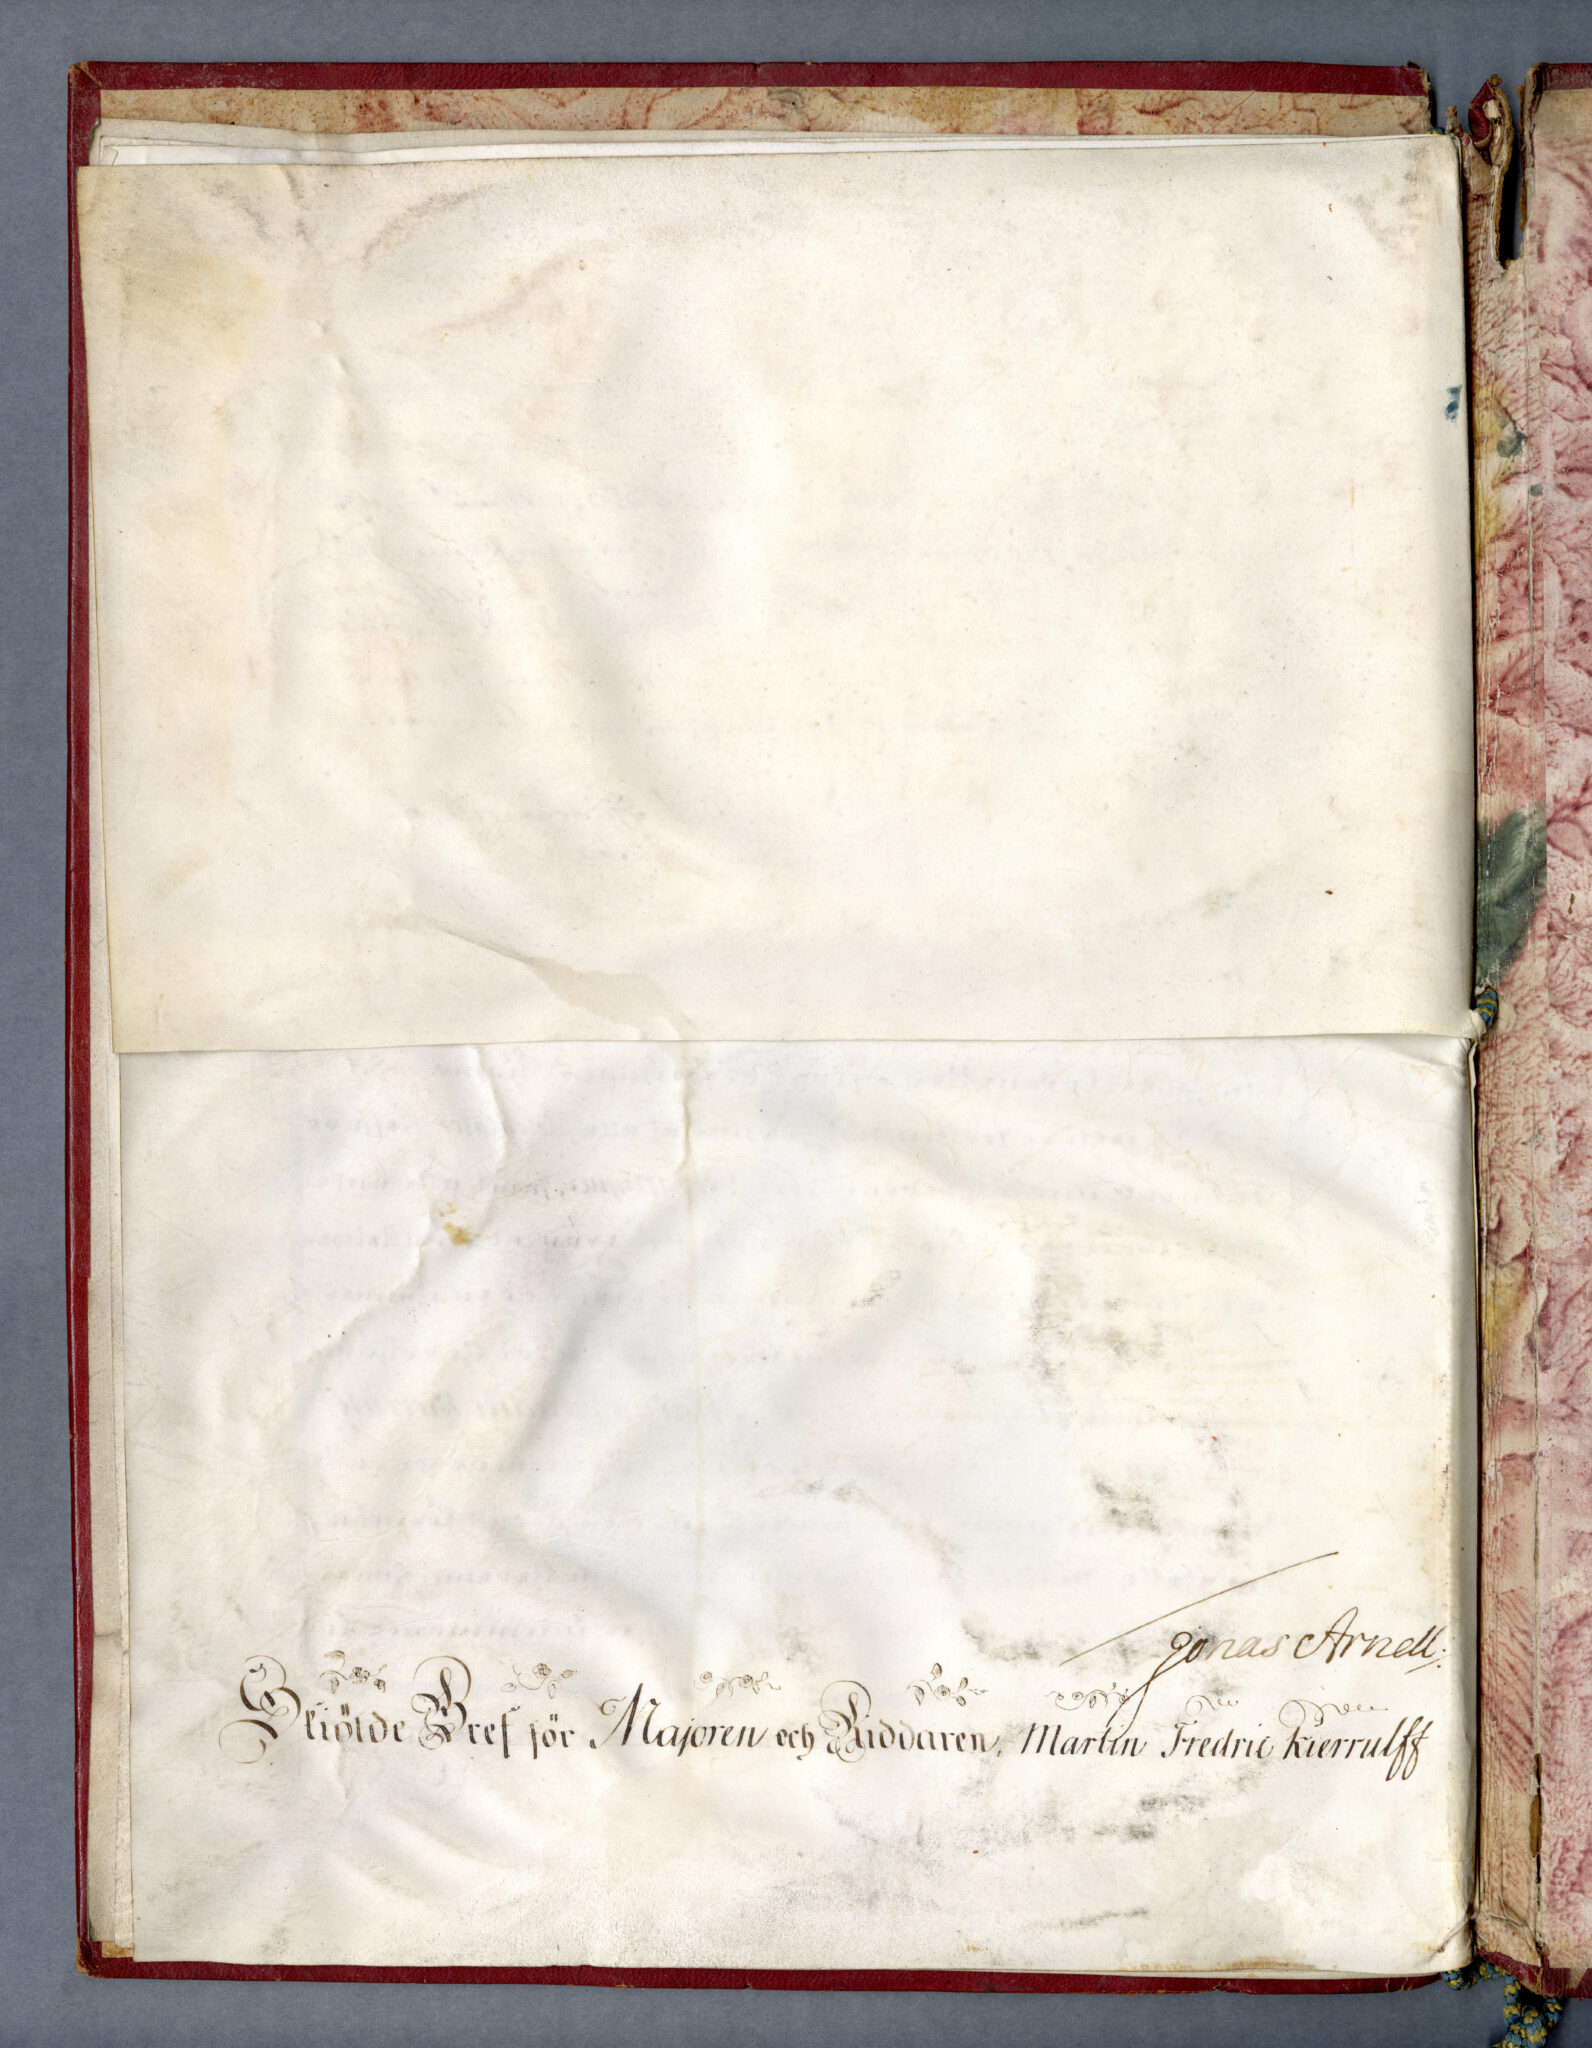 Jonas Arnell.
Skiölde Bref för Majoren och Riddaren, Martin Fredric Kierrulff